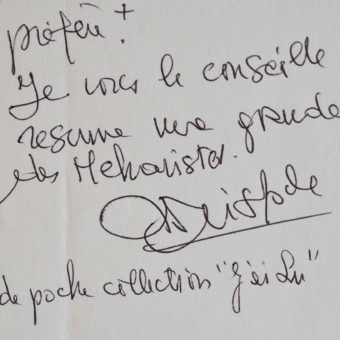 préféré !
Je vous le conseille
resume une grande
des Mehariste.
de poche collection "J'ai Lu"